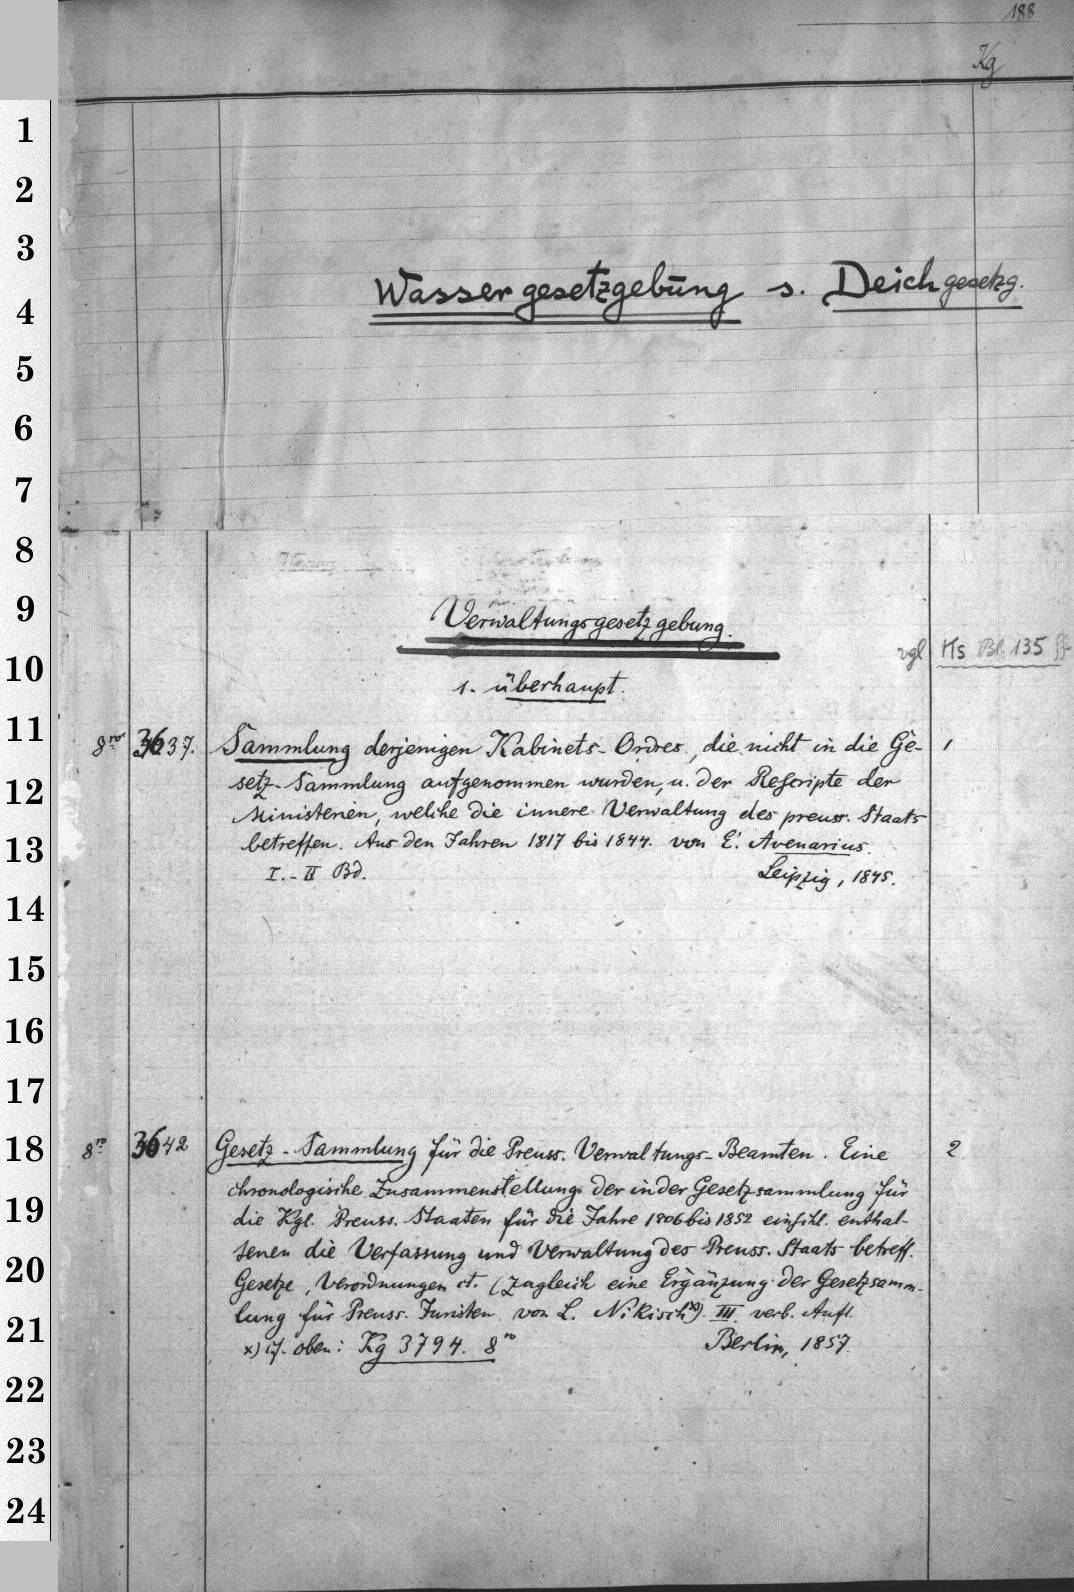 188
Kg
1
2
3
Wassergesetzgebung s. Deichgesetzg.
4
5
6
7
8
9
Verwaltungsgesetzgebung.
vgl Ks Bl. 135 ff
10
1. überhaupt.
11
8ro 3637. Sammlung derjenigen Kabinets-Ordres, die nicht in die Ge- 1
12
setz-Sammlung aufgenommen wurden, u. der Rescripte der
Ministerien, welche die innere Verwaltung des preuss. Staats
13
betreffen. Aus den Jahren 1817 bis 1844. von E. Avenarius.
I.-II Bd. Leipzig, 1845.
14
15
16
17
18
8ro 3642 Gesetz-Sammlung für die Preuss. Verwaltungs-Beamten. Eine 2
chronologische Zusammenstellung der in der Gesetzsammlung für
19
die Kgl. Preuss. Staaten für die Jahre 1806 bis 1852 einschl. enthal-
tenen die Verfassung und Verwaltung des Preuss. Staats betreff.
20
Gesetze, Verordnungen et. (Zugleich eine Ergänzung der Gesetzsamm-
lung für Preuss. Juristen von L. Nikisch x). III. verb. Aufl.
21
x) cf. oben: Kg 3794. 8ro Berlin, 1857.
22
23
24